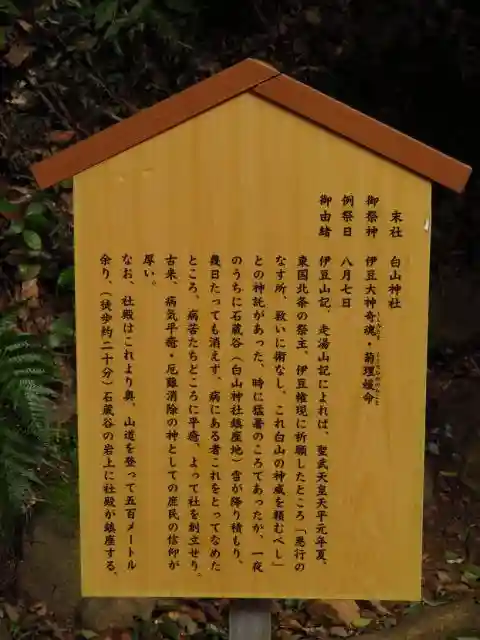 末社 白山神社
御祭神 伊豆大神奇魂・菊理媛命
例祭日 八月七日
御由緒 伊豆山記、走湯山記によれば、聖武天皇天平元年夏、
東国北条の祭主、伊豆権現に祈願したところ「悪行の
なす所、救いに術なし、これ白山の神威を頼むべし」
との神託があった、時に猛暑のころであったが、一夜
のうちに石蔵谷（白山神社鎮座地）雪が降り積もり、
幾日たっても消えず、病にある者これをとってなめた
ところ、病苦たちどころに平癒、よって社を創立せり。
古来、病気平癒・厄難消除の神としての庶民の信仰が
厚い。
なお、社殿はこれより奥、山道を登って五百メートル
余り、（徒歩約二十分）石蔵谷の岩上に社殿が鎮座する、